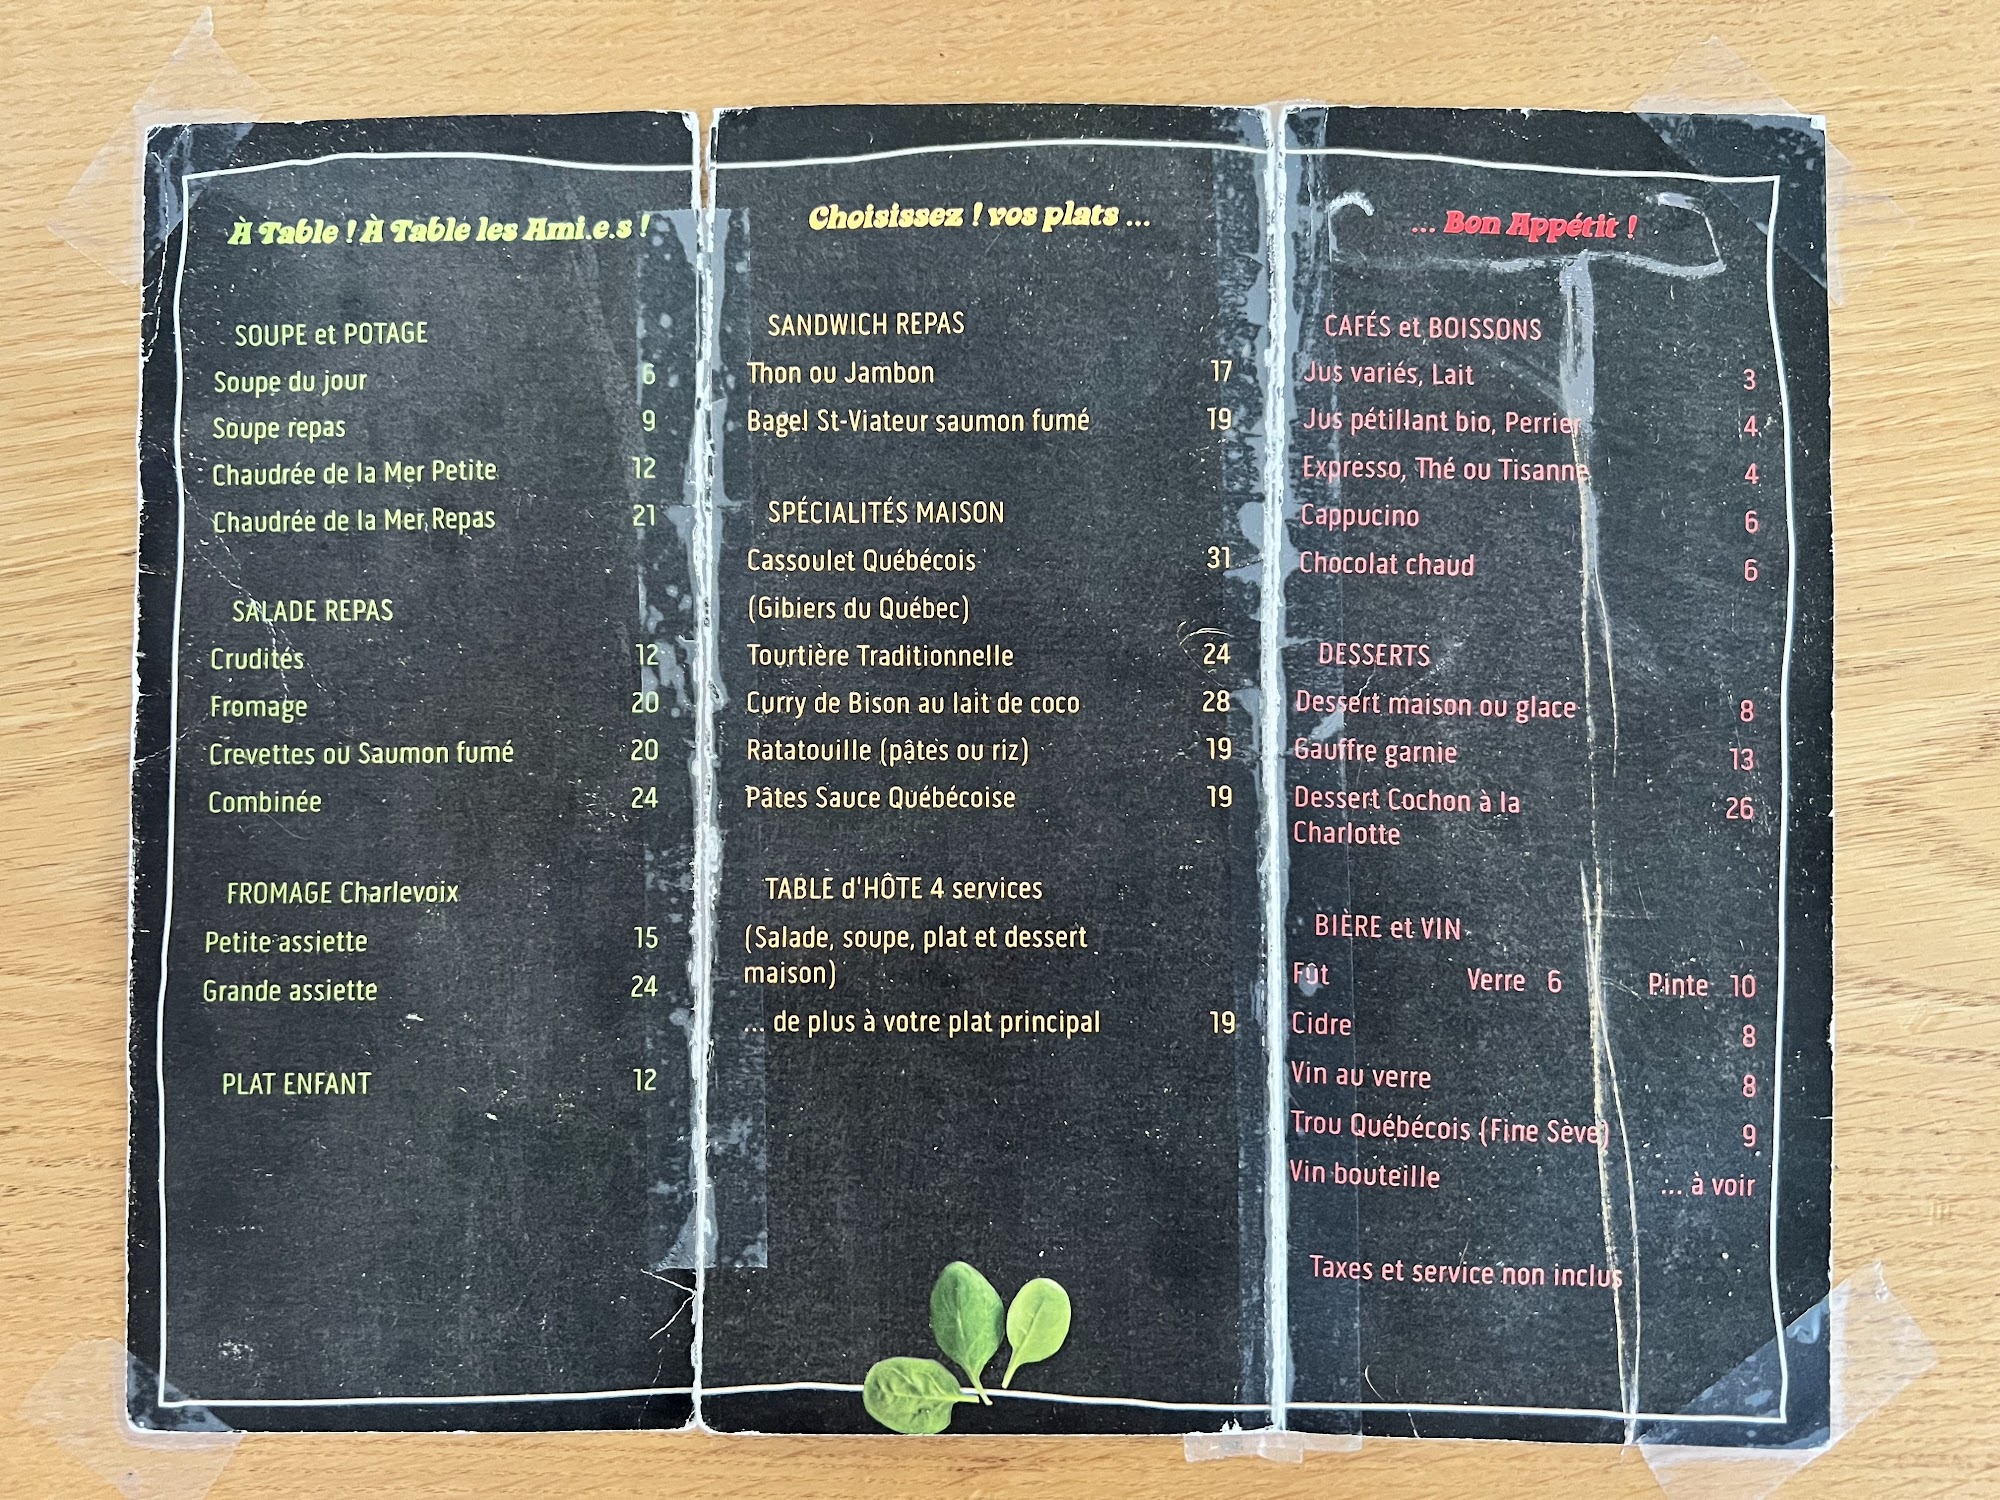 À Table ! À Table les Ami.e.s !
SOUPE et POTAGE
Soupe du jour 6
Soupe repas 9
Chaudrée de la Mer Petite 12
Chaudrée de la Mer Repas 21
SALADE REPAS
Crudités 12
Fromage 20
Crevettes ou Saumon fumé 20
Combinée 24
FROMAGE Charlevoix
Petite assiette 15
Grande assiette 24
PLAT ENFANT 12
Choisissez ! vos plats ...
SANDWICH REPAS
Thon ou Jambon 17
Bagel St-Viateur saumon fumé 19
SPÉCIALITÉS MAISON
Cassoulet Québécois 31
(Gibiers du Québec)
Tourtière Traditionnelle 24
Curry de Bison au lait de coco 28
Ratatouille (pâtes ou riz) 19
Pâtes Sauce Québécoise 19
TABLE d'HÔTE 4 services
(Salade, soupe, plat et dessert
maison)
... de plus à votre plat principal 19
... Bon Appétit !
CAFÉS et BOISSONS
Jus variés, Lait 3
Jus pétillant bio, Perrier 4
Expresso, Thé ou Tisanne 4
Cappucino 6
Chocolat chaud 6
DESSERTS
Dessert maison ou glace 8
Gauffre garnie 13
Dessert Cochon à la 26
Charlotte
BIÈRE et VIN
Fût Verre 6 Pinte 10
Cidre 8
Vin au verre 8
Trou Québécois (Fine Sève) 9
Vin bouteille ... à voir
Taxes et service non inclus